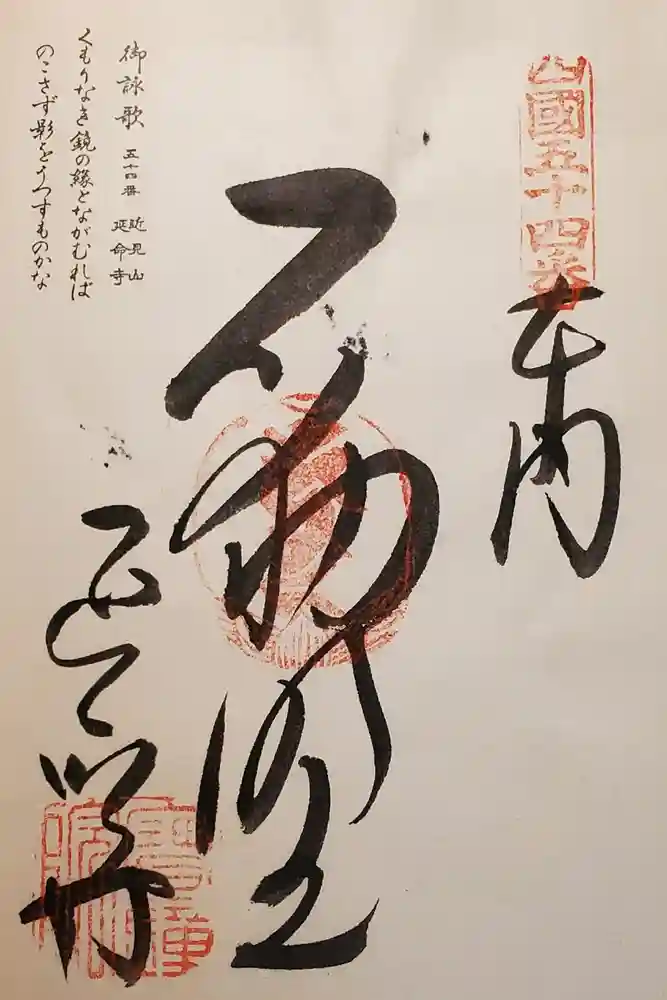 四國五十四番
奉納
不動明王
延命寺
御詠歌 五十四番 近見山
延命寺
くもりなき鏡の縁とながむれば
のこさず影をうつすものかな